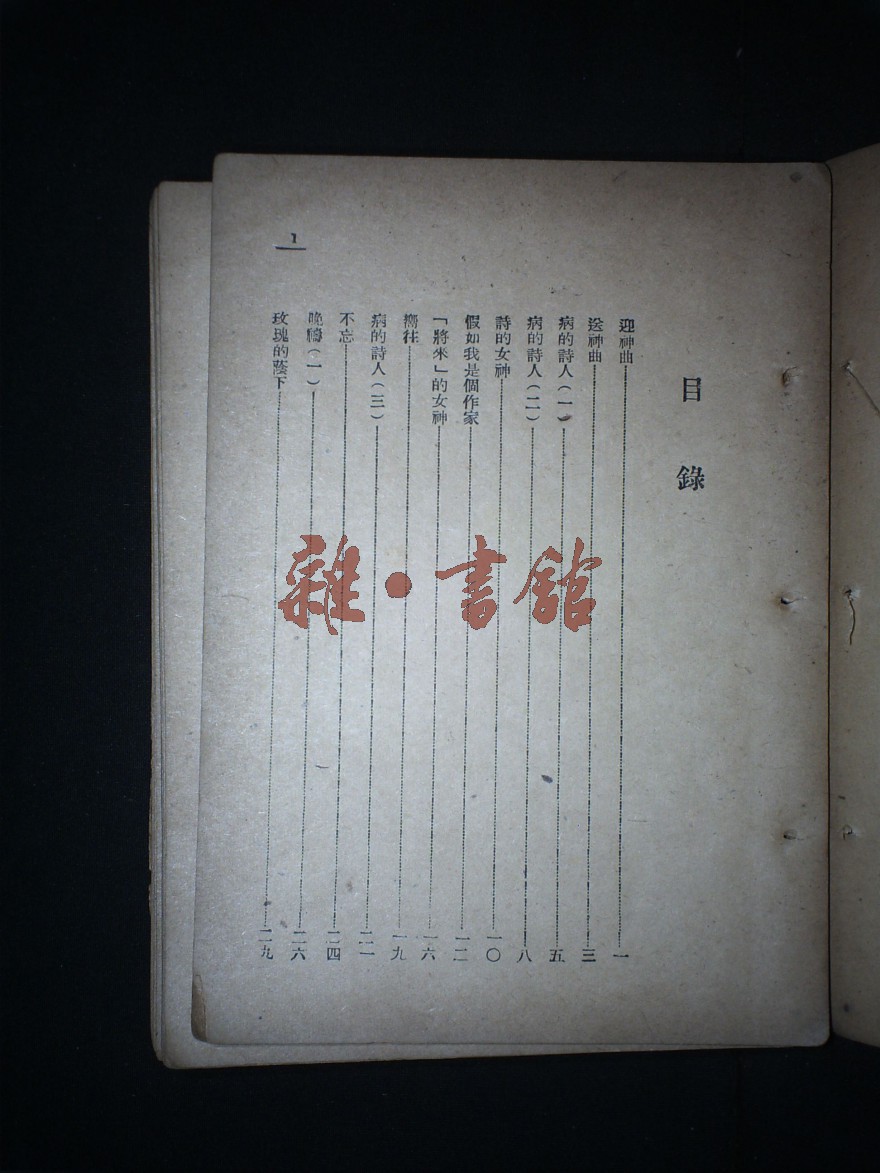 目錄
迎神曲 一
送神曲 三
病的詩人（一） 五
病的詩人（二） 八
詩的女神 一〇
假如我是個作家 一二
「將來」的女神 一六
嚮往 一九
病的詩人（三） 二一
不忘 二四
晚禱（一） 二六
玫瑰的蔭下 二九
1
雜•書館